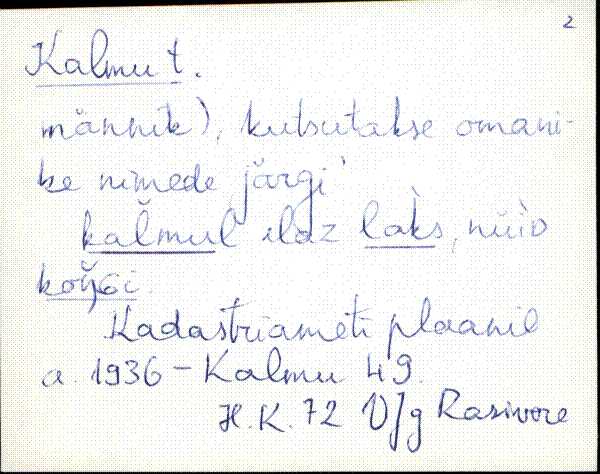 2
Kalmu t.
männik), kutsutakse omani-
ke nimede järgi
kal̆mul elaz làks, nüio
Kadastriameti plaanil
a. 1936 – Kalmu 49.
H.K. 72 V/g Rasivere